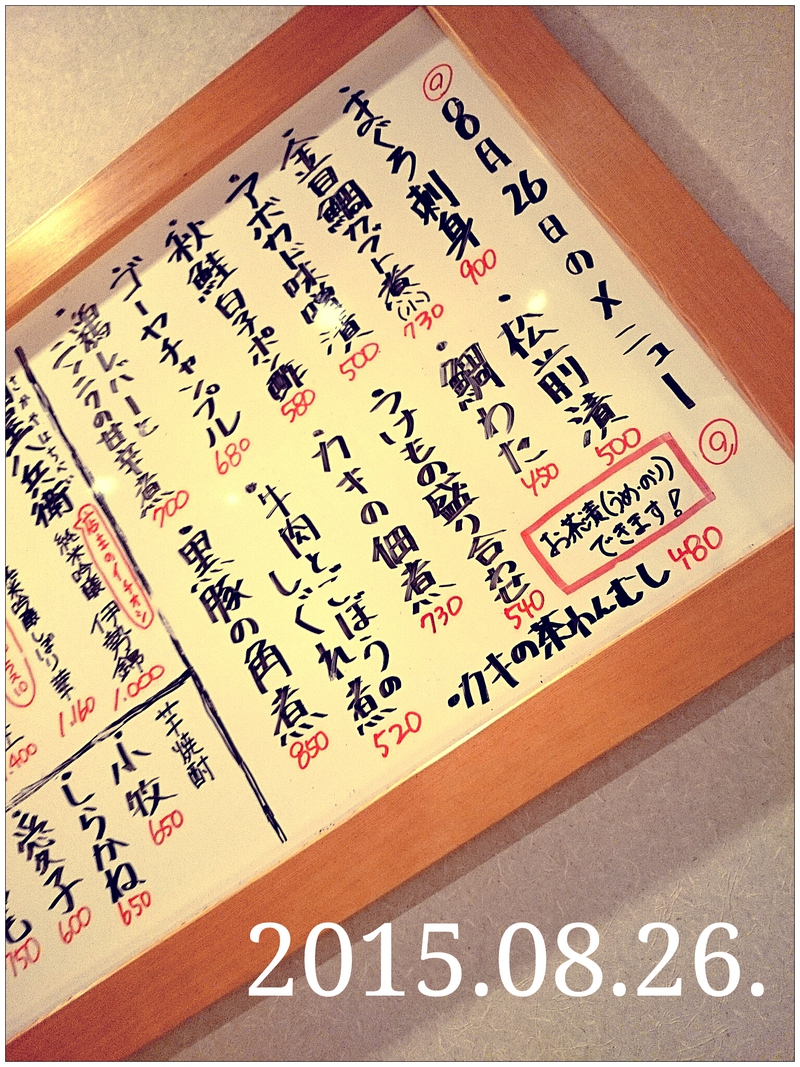 8月26日のメニュー
・まぐろ刺身 900
・金目鯛カブト煮(小) 730
・アボカド味噌漬 500
・秋鮭白子ポン酢 580
・ゴーヤチャンプル 680
・鶏レバーと
ニンニクの甘辛煮 700
・松前漬 500
・鯛わた 450
つけもの盛り合わせ 540
・カキの佃煮 730
・牛肉とごぼうの
しぐれ煮 520
・黒豚の角煮 850
お茶漬(うめ・のり)
できます!
・カキの茶わんむし 480
八兵衛
純米吟醸 伊勢錦 1.000
店主のイチオシ
純米吟醸しぼり華 1.160
.400
芋焼酎
・小牧 650
・しらかね 650
・愛子 600
750
2015.08.26.